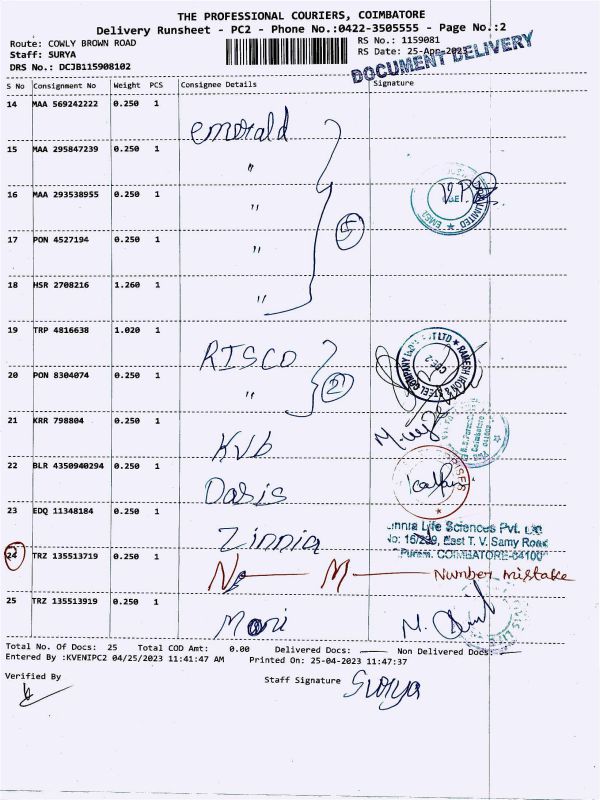 THE PROFESSIONAL COURIERS, COIMBATORE
Delivery Runsheet - PC2 - Phone No.:0422-3505555 - Page No.:2
Route: COWLY BROWN ROAD
RS No.: 1159081
Staff: SURYA
RS Date: 25-Apr-2023
DRS No.: DCJB115908102
DOCUMENT DELIVERY
S No Consignment No Weight PCS Consignee Details Signature
14 MAA 569242222 0.250 1 emerald
15 MAA 295847239 0.250 1 "
16 MAA 293538955 0.250 1 "
17 PON 4527194 0.250 1 " 5
18 HSR 2708216 1.260 1 "
19 TRP 4816638 1.020 1 RISCO
RAMESH IRON & STEEL COMPANY PVT LTD
20 PON 8304074 0.250 1 " 2
21 KRR 798804 0.250 1 Kvb
22 BLR 4350940294 0.250 1 Oasis
23 EDQ 11348184 0.250 1 Zinnia
Life Sciences Pvt.
East T. V. Samy Road
COIMBATORE
24 TRZ 135513719 0.250 1 No M Number mistake
25 TRZ 135513919 0.250 1 Mani
Total No. Of Docs: 25 Total COD Amt: 0.00 Delivered Docs: Non Delivered Docs:
Entered By :KVENIPC2 04/25/2023 11:41:47 AM Printed On: 25-04-2023 11:47:37
Verified By
Staff Signature Surya